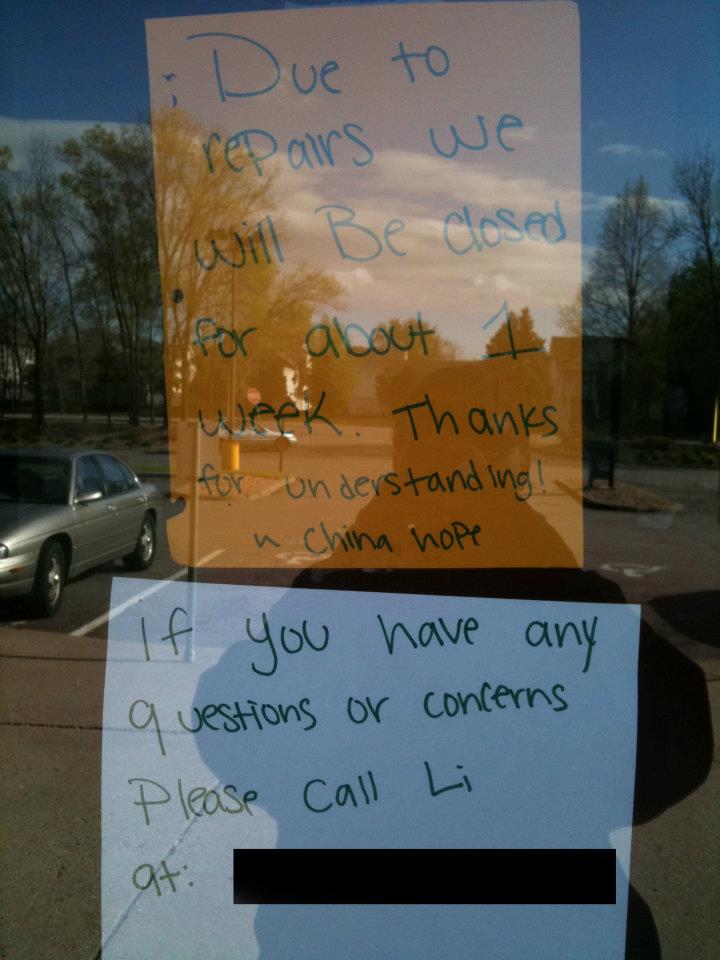 Due to
repairs we
will Be closed
for about 1
week. Thanks
for understanding!
~ China hope
if you have any
questions or concerns
Please call Li
at: